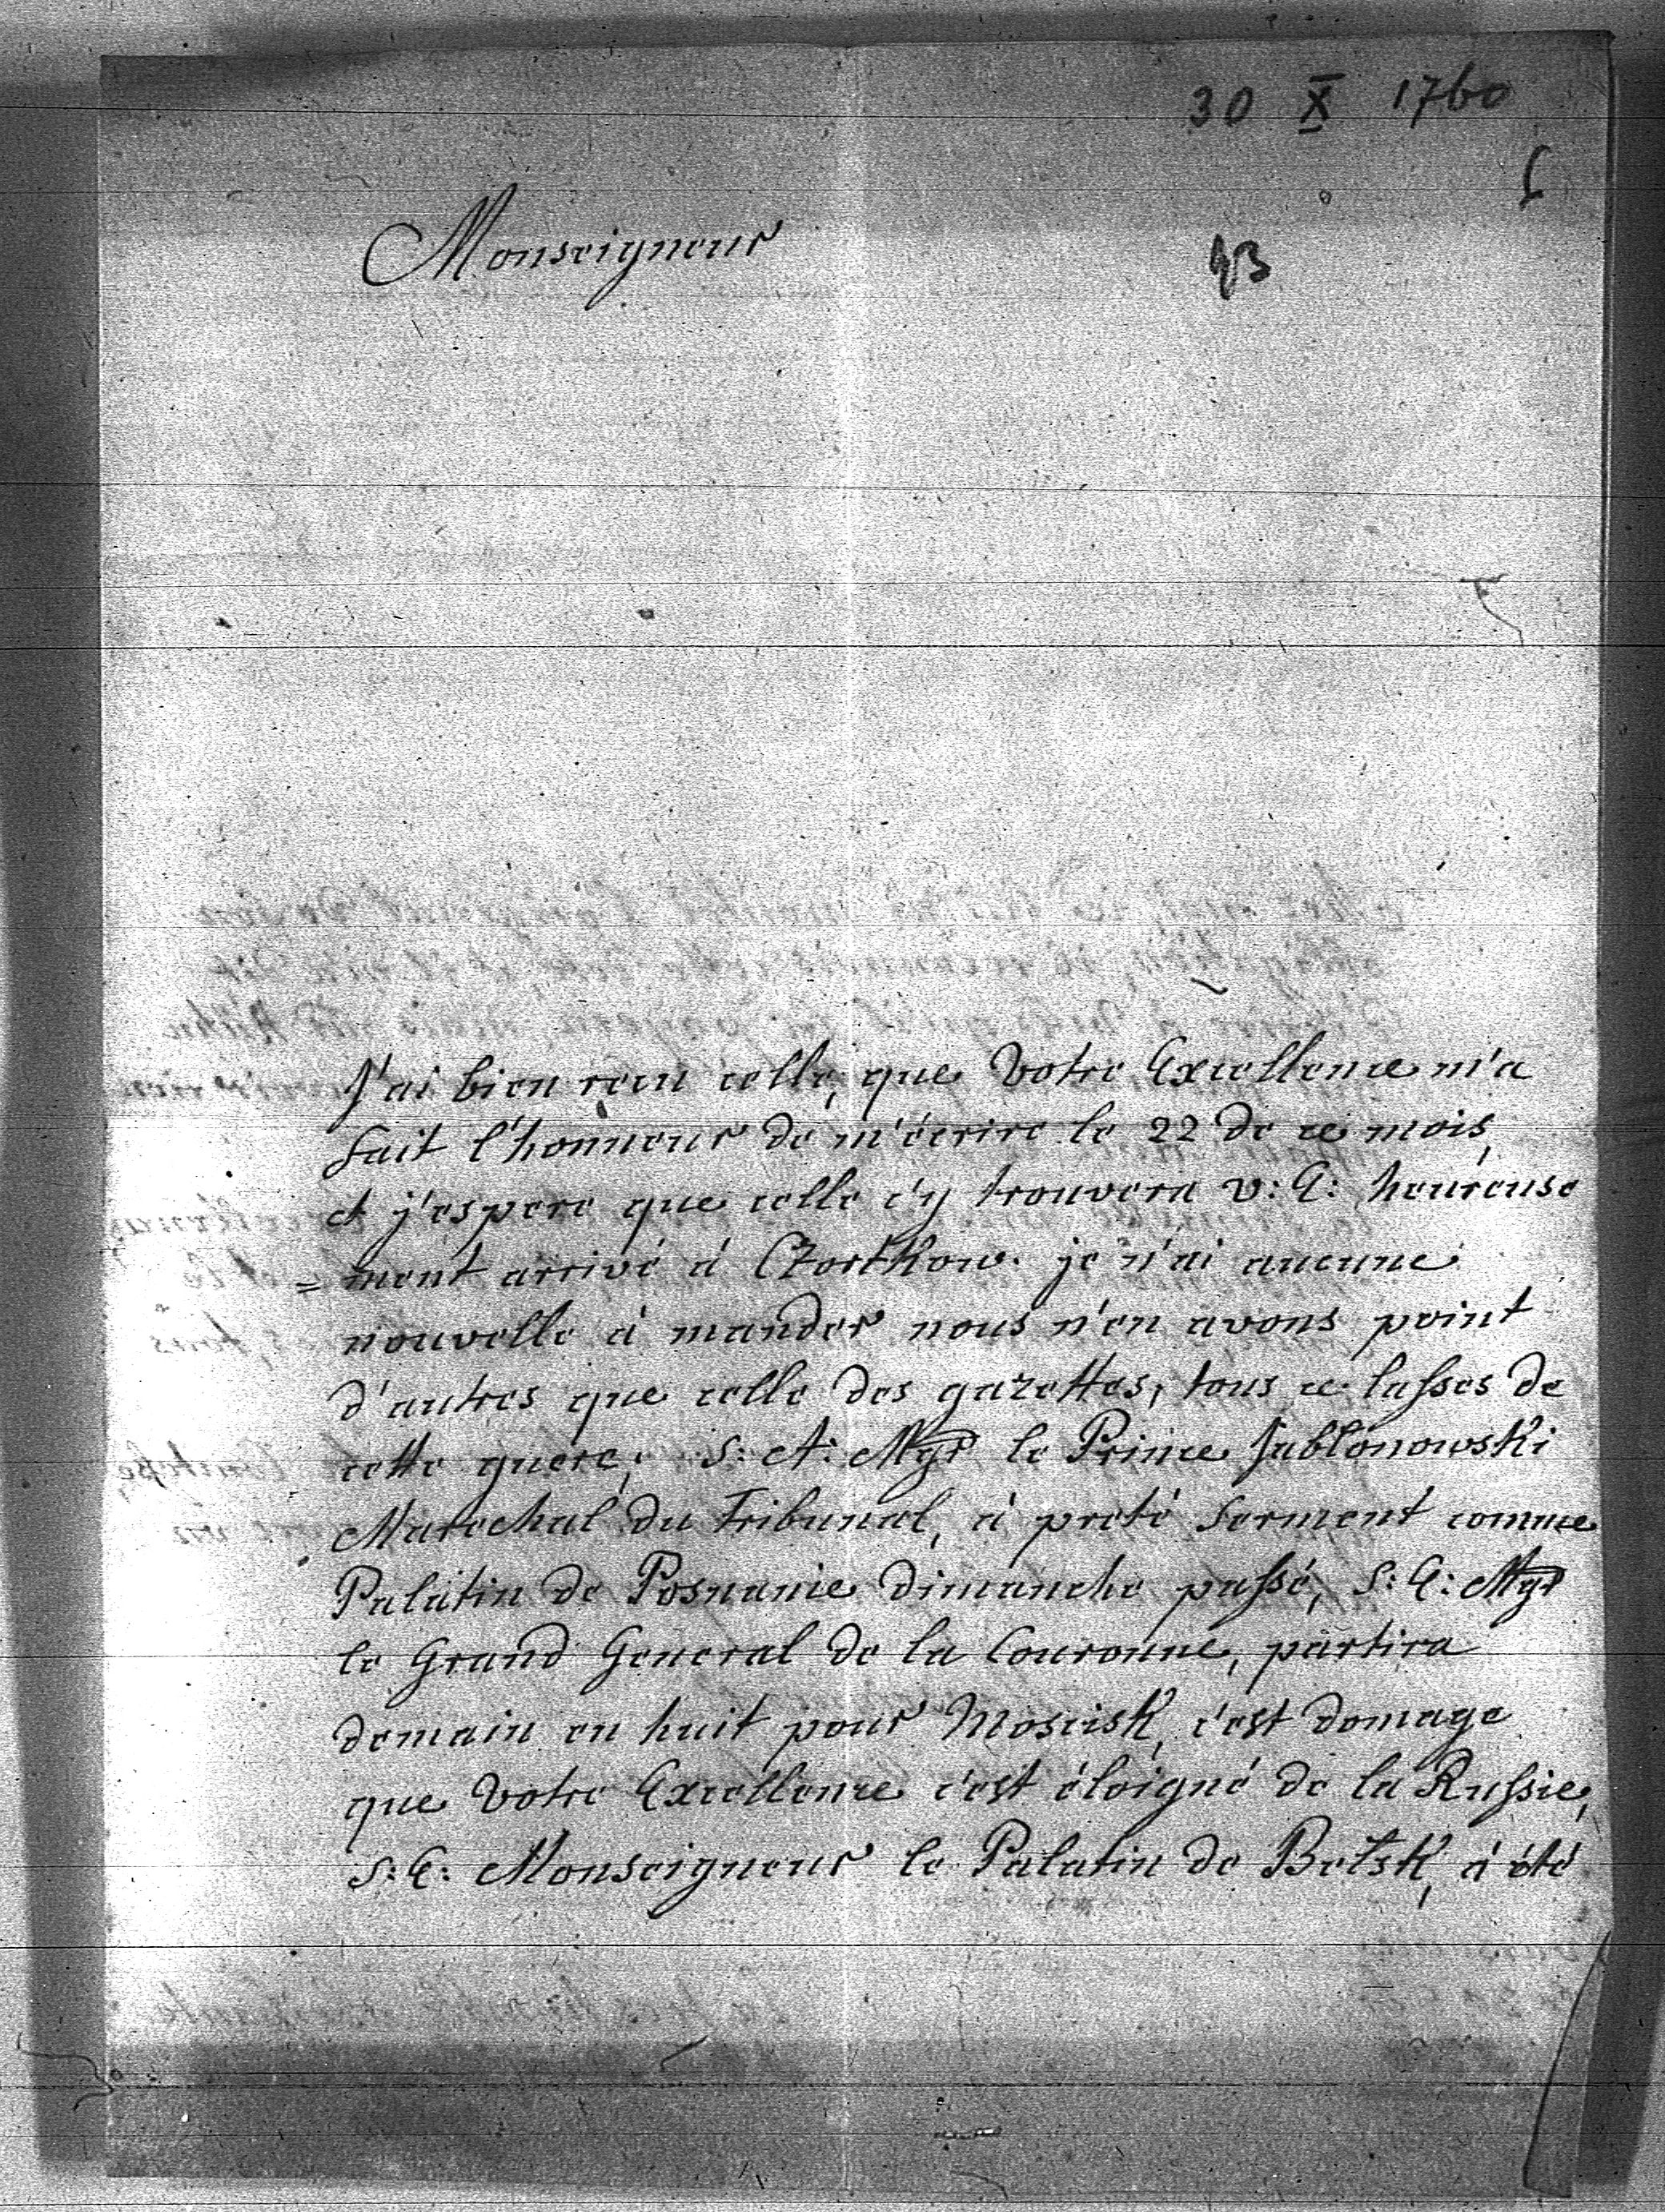 30 X 1760
Monseigneur
J'ai bien recu celle, que Votre Excellence m'a
fait l'honneur de m'écrire le 22 de ce mois,
et j'espere que celle c'y trouvera V: E: heureuse
= ment arrivé á Czortkow. je n'ai aucune
nouvelle à mander nous n'en avons point
d'autres que celle des gazettes, tous ce lasses de
cette guere; S: A: Mgr le Prince Jablonowski
Marechal du Tribunal, á preté Serment comme
Palatin de Posnanie dimanche passé, S: E: Mgr
le Grand General de la Couronne, partira
demain en huit pour Moscisk, c'est domage
que Votre Excellence c'est éloigné de la Russie,
S: E: Monseigneur le Palatin de Belsk, á été